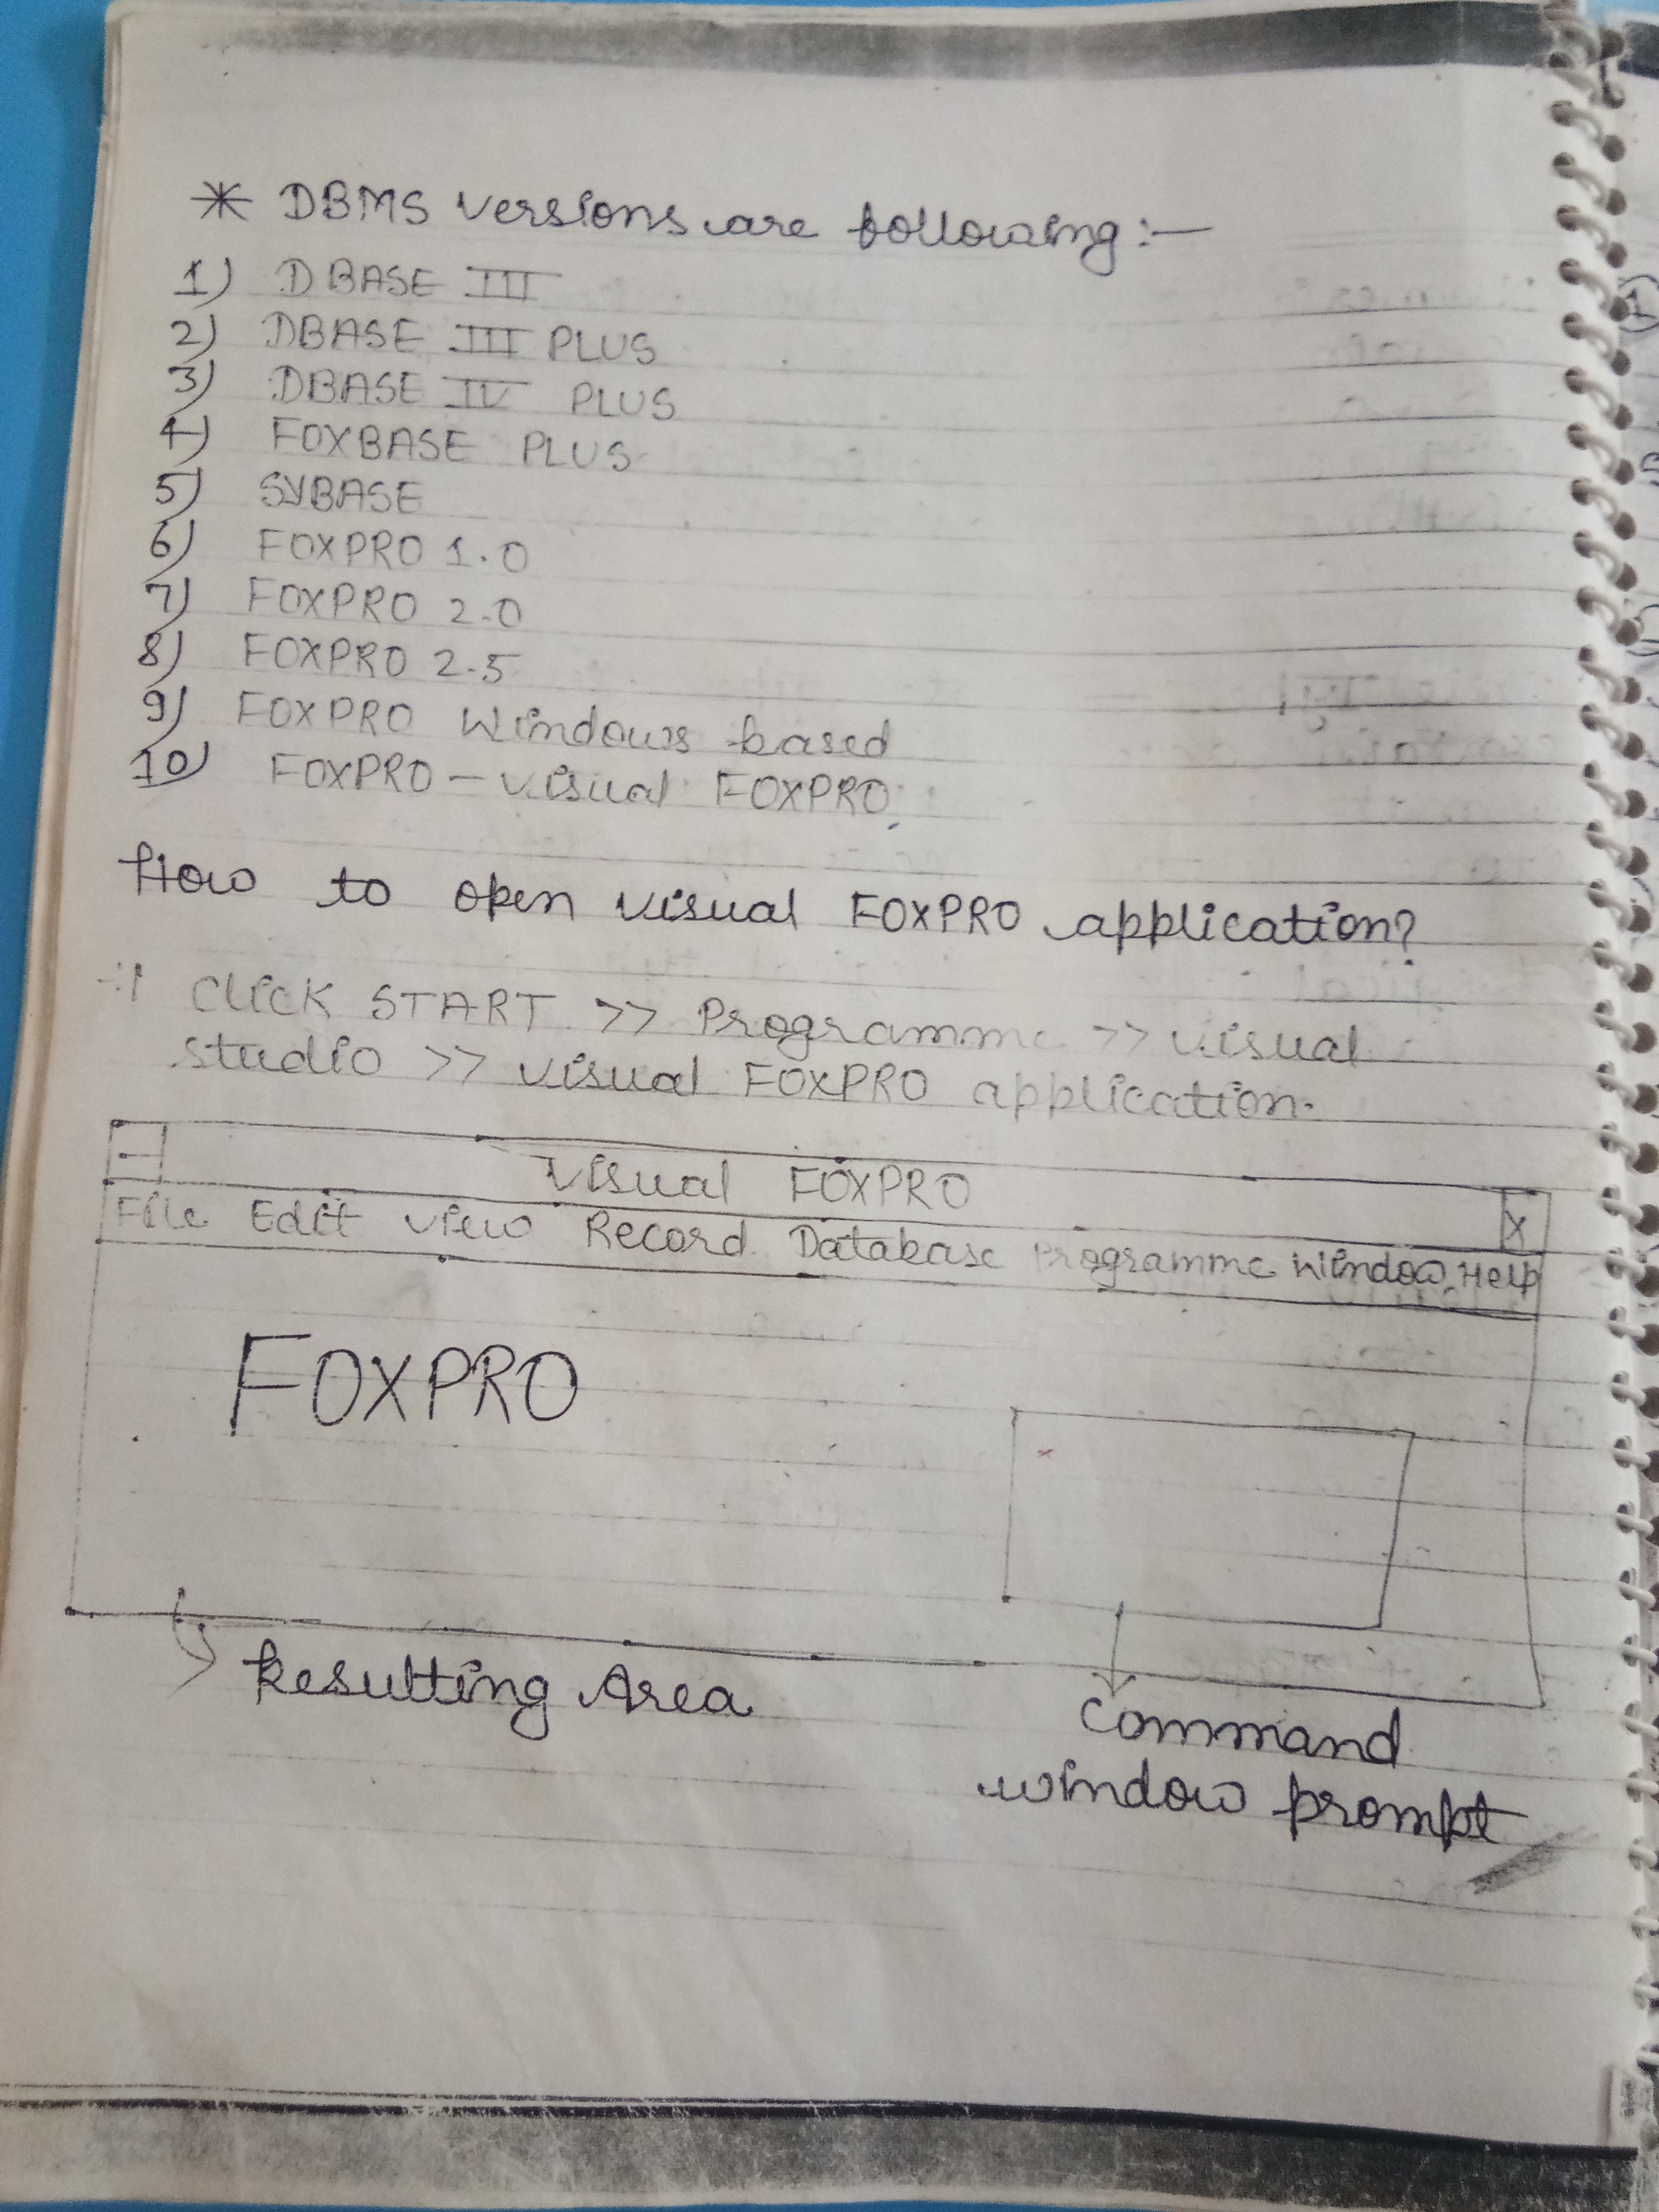 * DBMS versions are following:-
1) DBASE III
2) DBASE III PLUS
3) DBASE IV PLUS
4) FOXBASE PLUS
5) SYBASE
6) FOXPRO 1.0
7) FOXPRO 2.0
8) FOXPRO 2.5
9) FOXPRO Windows based
10) FOXPRO - visual FOXPRO
How to open visual FOXPRO application?
Click START >> Programme >> visual
studio >> visual FOXPRO application.
Visual FOXPRO
X
File Edit view Record Database Programme Window Help
FOXPRO
Resulting Area
Command
window prompt